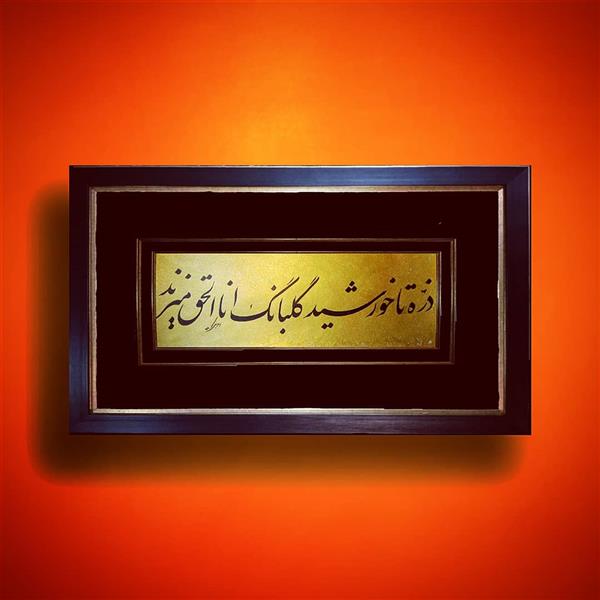 ذرّه تا خورشید گلبانگ انا الحق میزند